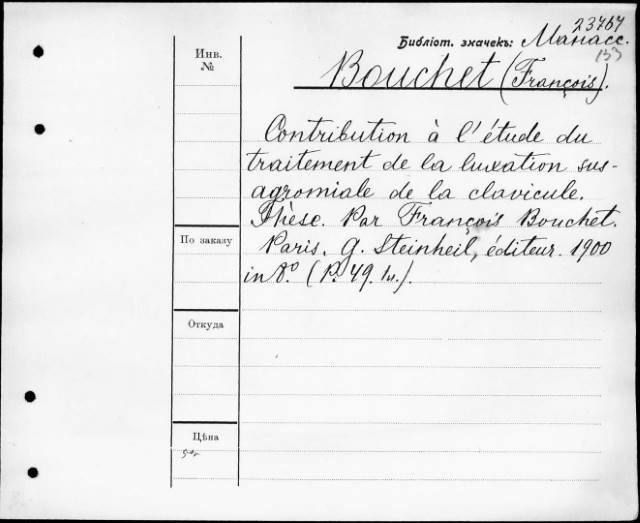 23767
Библіот. значекъ: Манасс.
133
Инв.
№
Bouchet (François).
Contribution à l'étude du
traitement de la luxation sus-
agromiale de la clavicule.
Thèse. Par François Bouchet.
По заказу
Paris. G. Steinheil, éditeur. 1900
in 8º. (P. 49. 1 u.).
Откуда
Цѣна